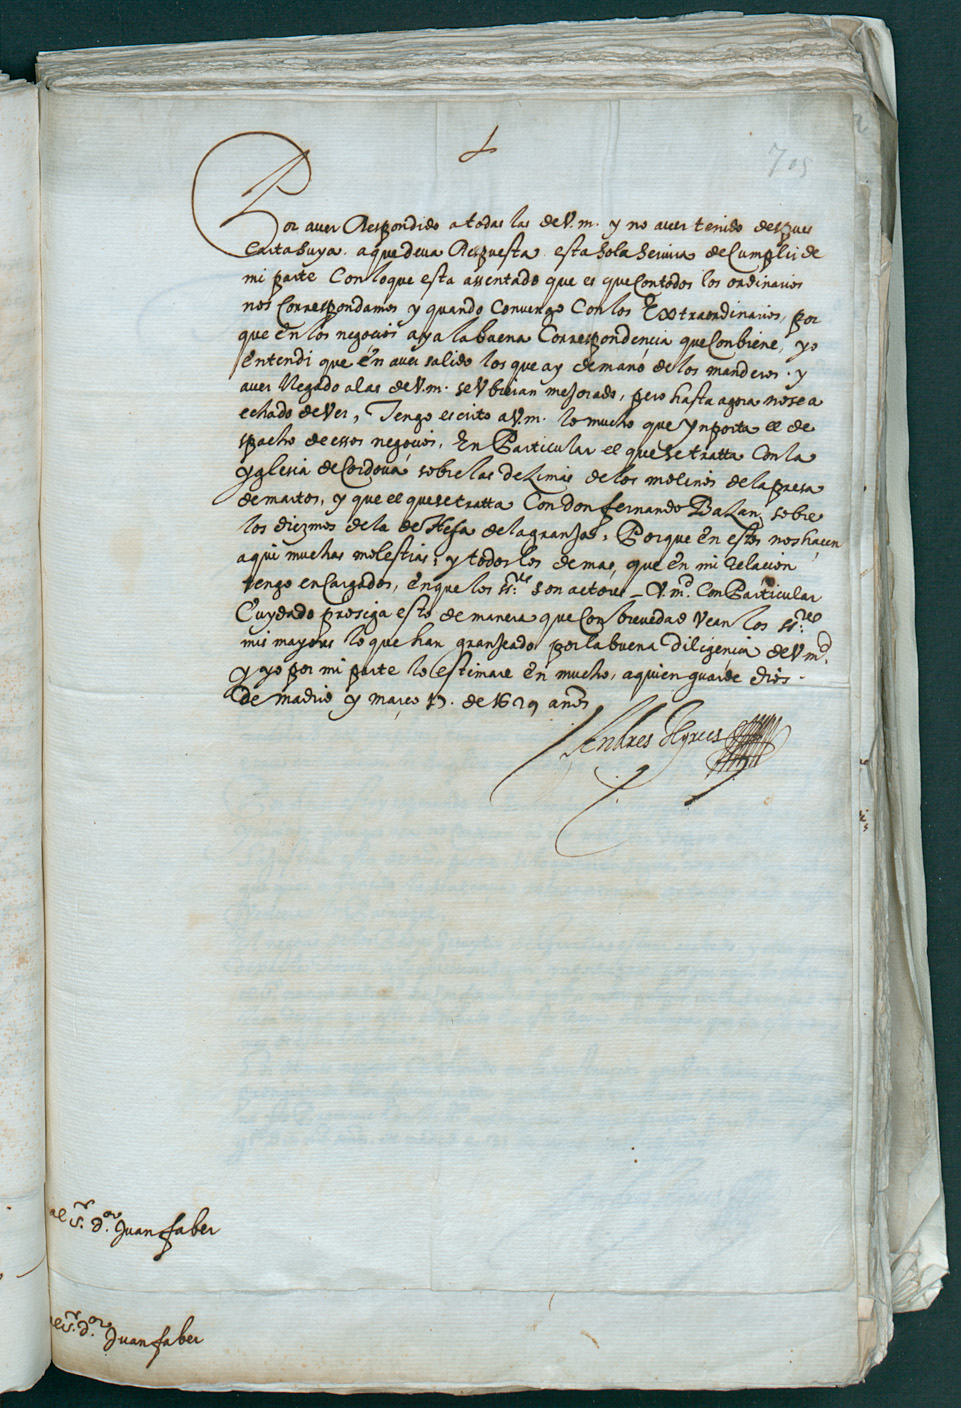 705
Por aver Respondido a todas las de V.m. y no aver tenido despues
Carta suya. a que deva Respuesta. esta sola servira de Cumplir de
mi parte Con lo que esta assentado que es que Con todos los ordinarios
nos Correspondamos y quando Convenga Con los Extraordinarios, por
que En los negocios aya la buena Correspondençia que Conbiene, yo
Entendi que En aver salido los que ay de mano de los manderos. y
aver llegado a las de V.m. se Vbieran mejorado, pero hasta agora no se a
echado de Ver, Tengo escrito a V.m. lo mucho que ynporta el de
spacho de essos negocios, En Particular el que se tratta Con la
yglesia de Cordova sobre las deZimas de los molinos de la presa
de martos, y que el que se tratta Con don fernando BaZan, sobre
los diezmos de la deHesa de la granja, Porque En estos nos hacen
aqui muchas molestias, y todos los demas, que en mi Relacion
tengo enCargados, En que los ss.res son actores _ V.md. Con Particular
Cuydado prosiga esto de manera que Con brevedad Vean los ss.res
mis mayores lo que han granjeado por la buena Diligençia de V.md.
y yo por mi parte lo estimare En mucho, a quien guarde Dios.
de madrid y março 13. de 1629 años
Andres Hyrus
al s.r d.or Juan faber
al s.r d.or Juan faber